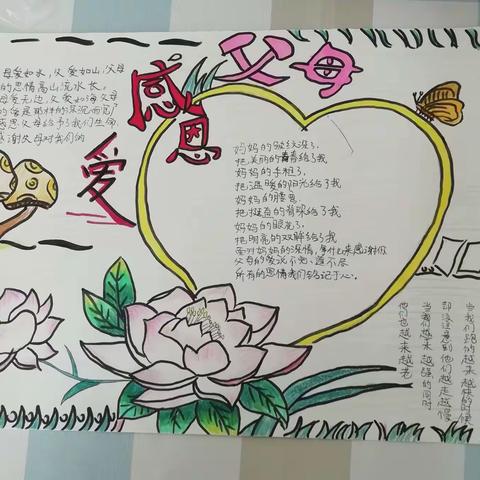 感恩
父母
爱
母爱如水，父爱如山，父母
的恩情高山流水长。
母爱无边，父爱如海父母
的爱是那样的深沉而宽广
感恩父母给予我们生命，
感谢父母对我们的
妈妈的皱纹深了，
把美丽的青春给了我
妈妈的手粗了，
把温暖的阳光给了我
妈妈的腰弯
把挺直的脊梁给了我
妈妈的眼花了，
把明亮的双眸给了我
面对妈妈的深情，拿什么来感谢你
父母的爱说不完、道不尽
所有的恩情我们铭记于心。
当我们跑的越来越快的时候
却没注意到他们越走越慢
当我们越来越强的同时
他们也越来越老